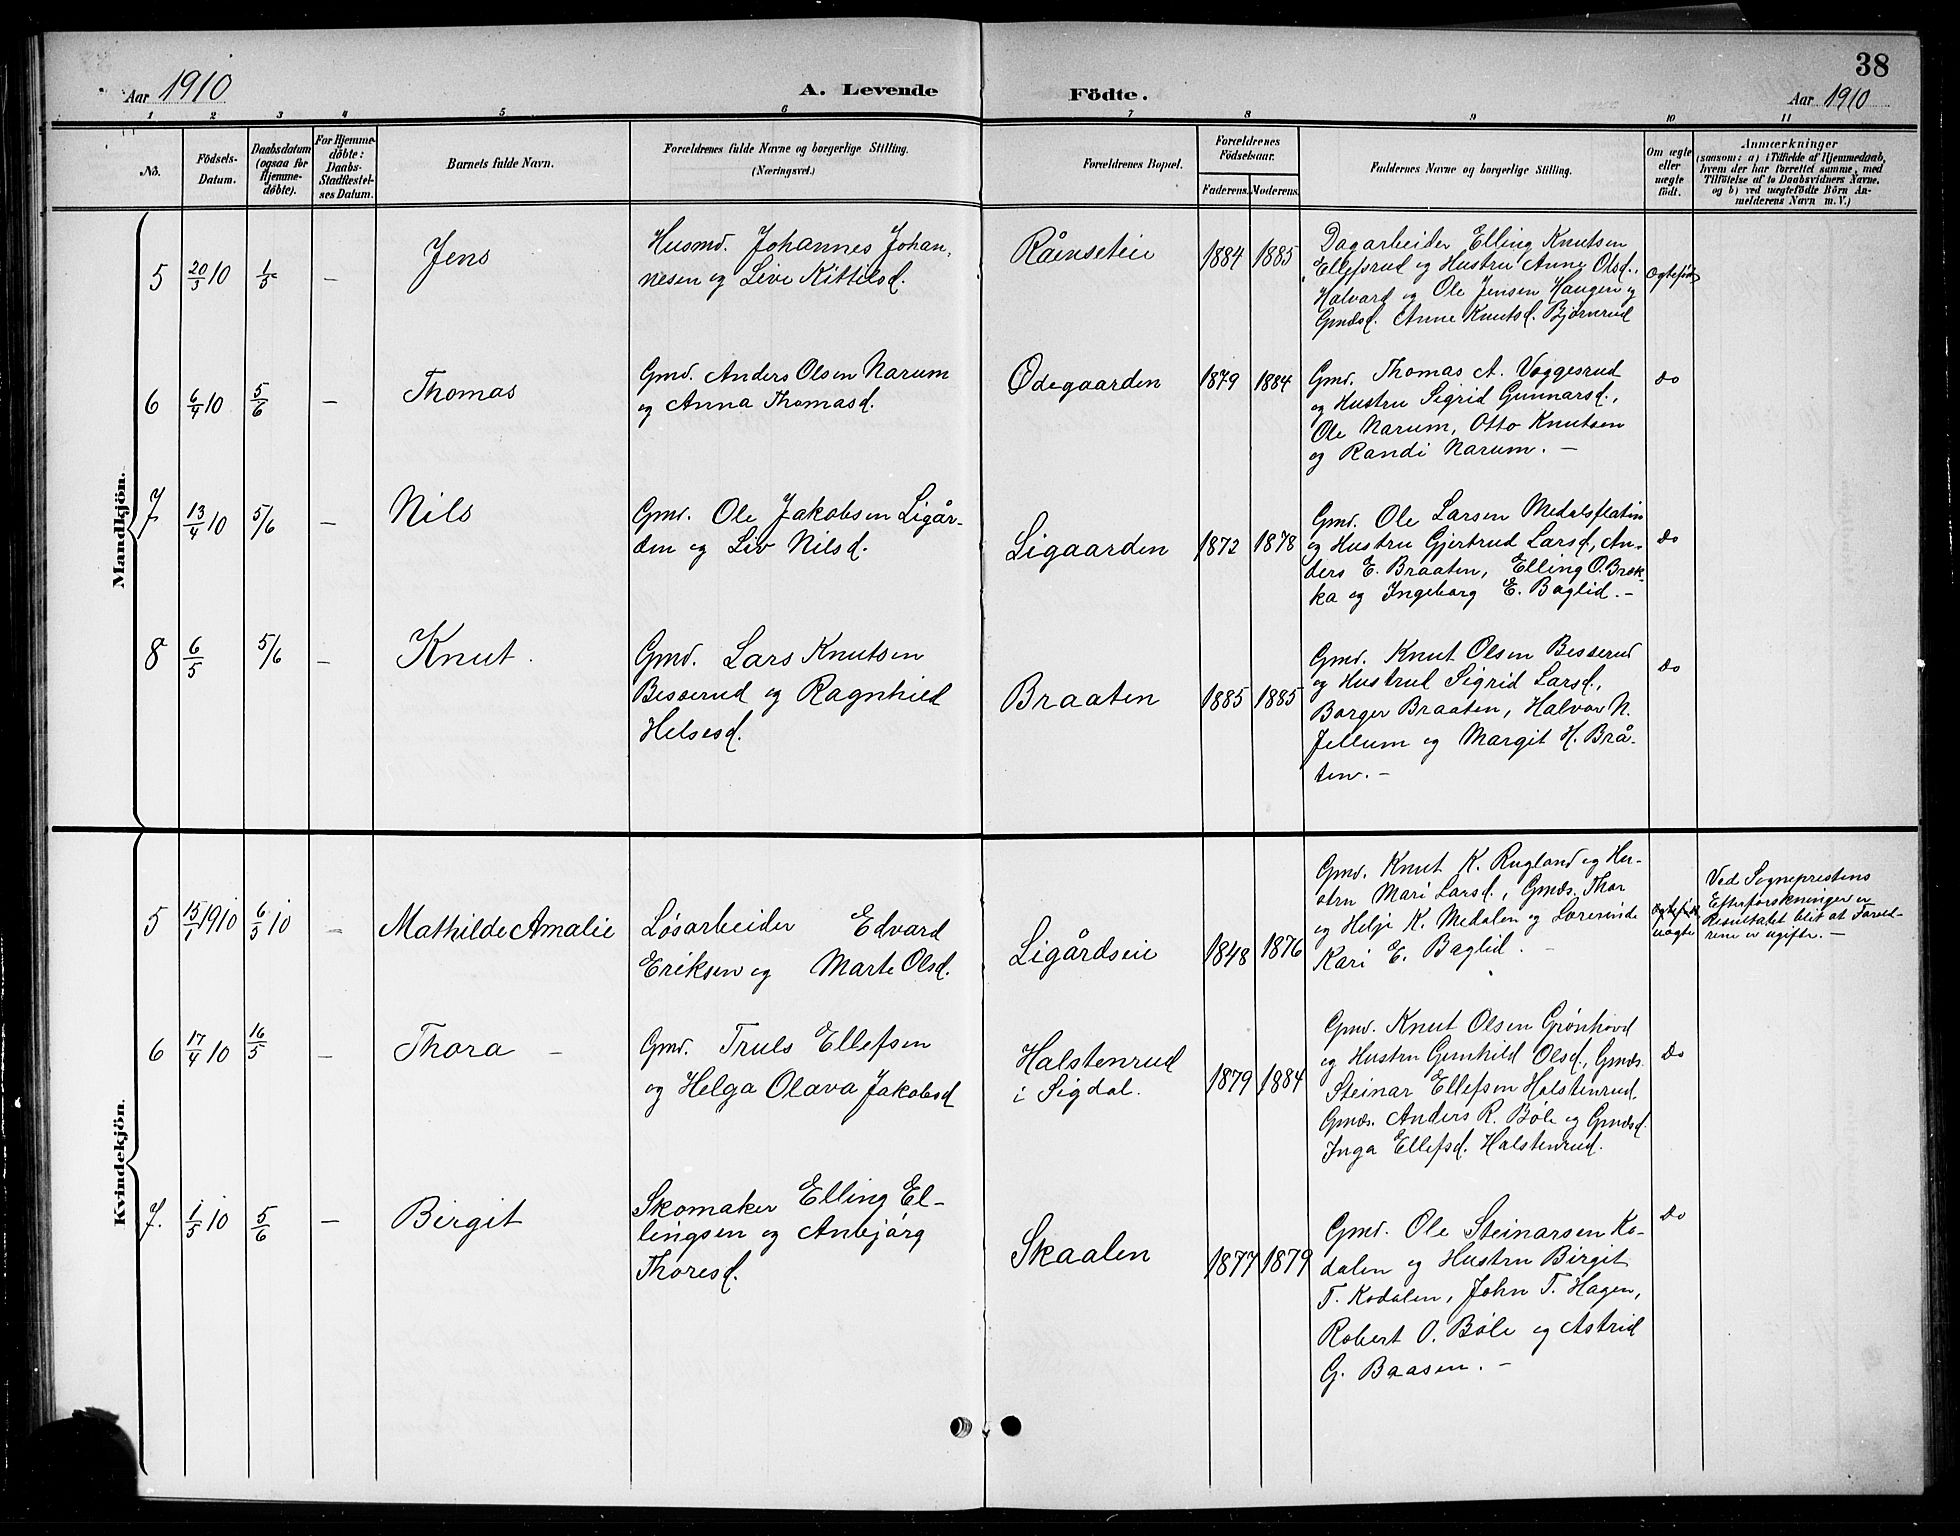 38
Aar 1910
A. Levende Födte.
Aar 1910
1 2 3 4 5 6 7 8 9 10 11
No.
Födsels-
Datum.
Daabsdatum
(ogsaa for
Hjemme-
døbte).
For Hjemme-
døbte:
Daabs-
Stadfæstel-
ses Datum.
Barnets fulde Navn.
Forældrenes fulde Navne og borgerlige Stilling.
(Næringsvei.)
Forældrenes Bopæl.
Forældrenes
Födselsaar.
Faderens. Moderens.
Faddernes Navne og borgerlige Stilling.
Om ægte
eller
uægte
født.
Anmærkninger
(saasom: a) i Tilfælde af Hjemmedaab,
hvem der har forrettet samme, med
Tilföielse af to Daabsvidners Navne,
og b) ved uægtefødte Börn An-
melderens Navn m. V.)
Mandkjön.
5 20/3 10 1/5 — Jens
Husmd. Johannes Johan-
nesen og Live Kittilsd.
Råenseteie 1884 1885
Dagarbeider Elling Knutsen
Ellefsrud og Hustru Anne Olsd.,
Halvard og Ole Jensen Haugen og
Gmdsd. Anne Knutsd. Bjørnrud
Ogtefød
6 6/4 10 5/6 — Thomas
Gmd. Anders Olsen Narum
og Anna Thomasd.
Odegaarden 1879 1884
Gmd. Thomas A. Voggesrud
og Hustru Sigrid Gunnarsd.,
Ole Narum, Otto Knutsen
og Randi Narum. —
do
7 13/4 10 5/6 — Nils
Gmd. Ole Jakobsen Ligår-
den og Liv Nilsd.
Ligaarden 1872 1878
Gmd. Ole Larsen Medalsflatin
og Hustru Gjertrud Larsd., An-
ders E. Braaten, Elling O. Brek-
ka og Ingeborg E. Baglid. —
do
8 6/5 5/6 — Knut.
Gmd. Lars Knutsen
Besserud og Ragnhild
Helsesd.
Braaten 1885 1885
Gmd. Knut Olsen Besserud
og Hustrul Sigrid Larsd.,
Borger Braaten, Halvor N.
Jellum og Margit H. Brå-
ten. —
do
Kvindekjön.
5 15/1 1910 6/5 10 — Mathilde Amalie
Løsarbeider Edvard
Eriksen og Marte Olsd.
Ligårdseie 1848 1876
Gmd. Knut K. Rugland og Hu-
stru Mari Larsd., Gmds. Thor
og Helje K. Medalen og Lærerinde
Kari E. Baglid. —
uægte
Ved Sogneprestens
Efterforskninger er
Resultatet blit at Foræld-
rene er ugifte. —
6 17/4 10 16/5 — Thora —
Gmd. Truls Ellefsen
og Helga Olava Jakobsd
Halstenrud
i Sigdal.
1879 1884
Gmd. Knut Olsen Grønhovd
og Hustru Gunhild Olsd., Gmds.
Steinar Ellefsen Halstenrud,
Gmds. Anders R. Bøle og Gmdsd.
Inga Ellefsd. Halstenrud.
Do
7. 1/5 10 5/6 — Birgit
Skomaker Elling El-
lingsen og Anbjørg
Thoresd.
Skaalen 1877 1879
Gmd. Ole Steinarsen Ko-
dalen og Hustru Birgit
T. Kodalen, John T. Hagen,
Robert O. Bøle og Astrid
G. Baasen. —
Do